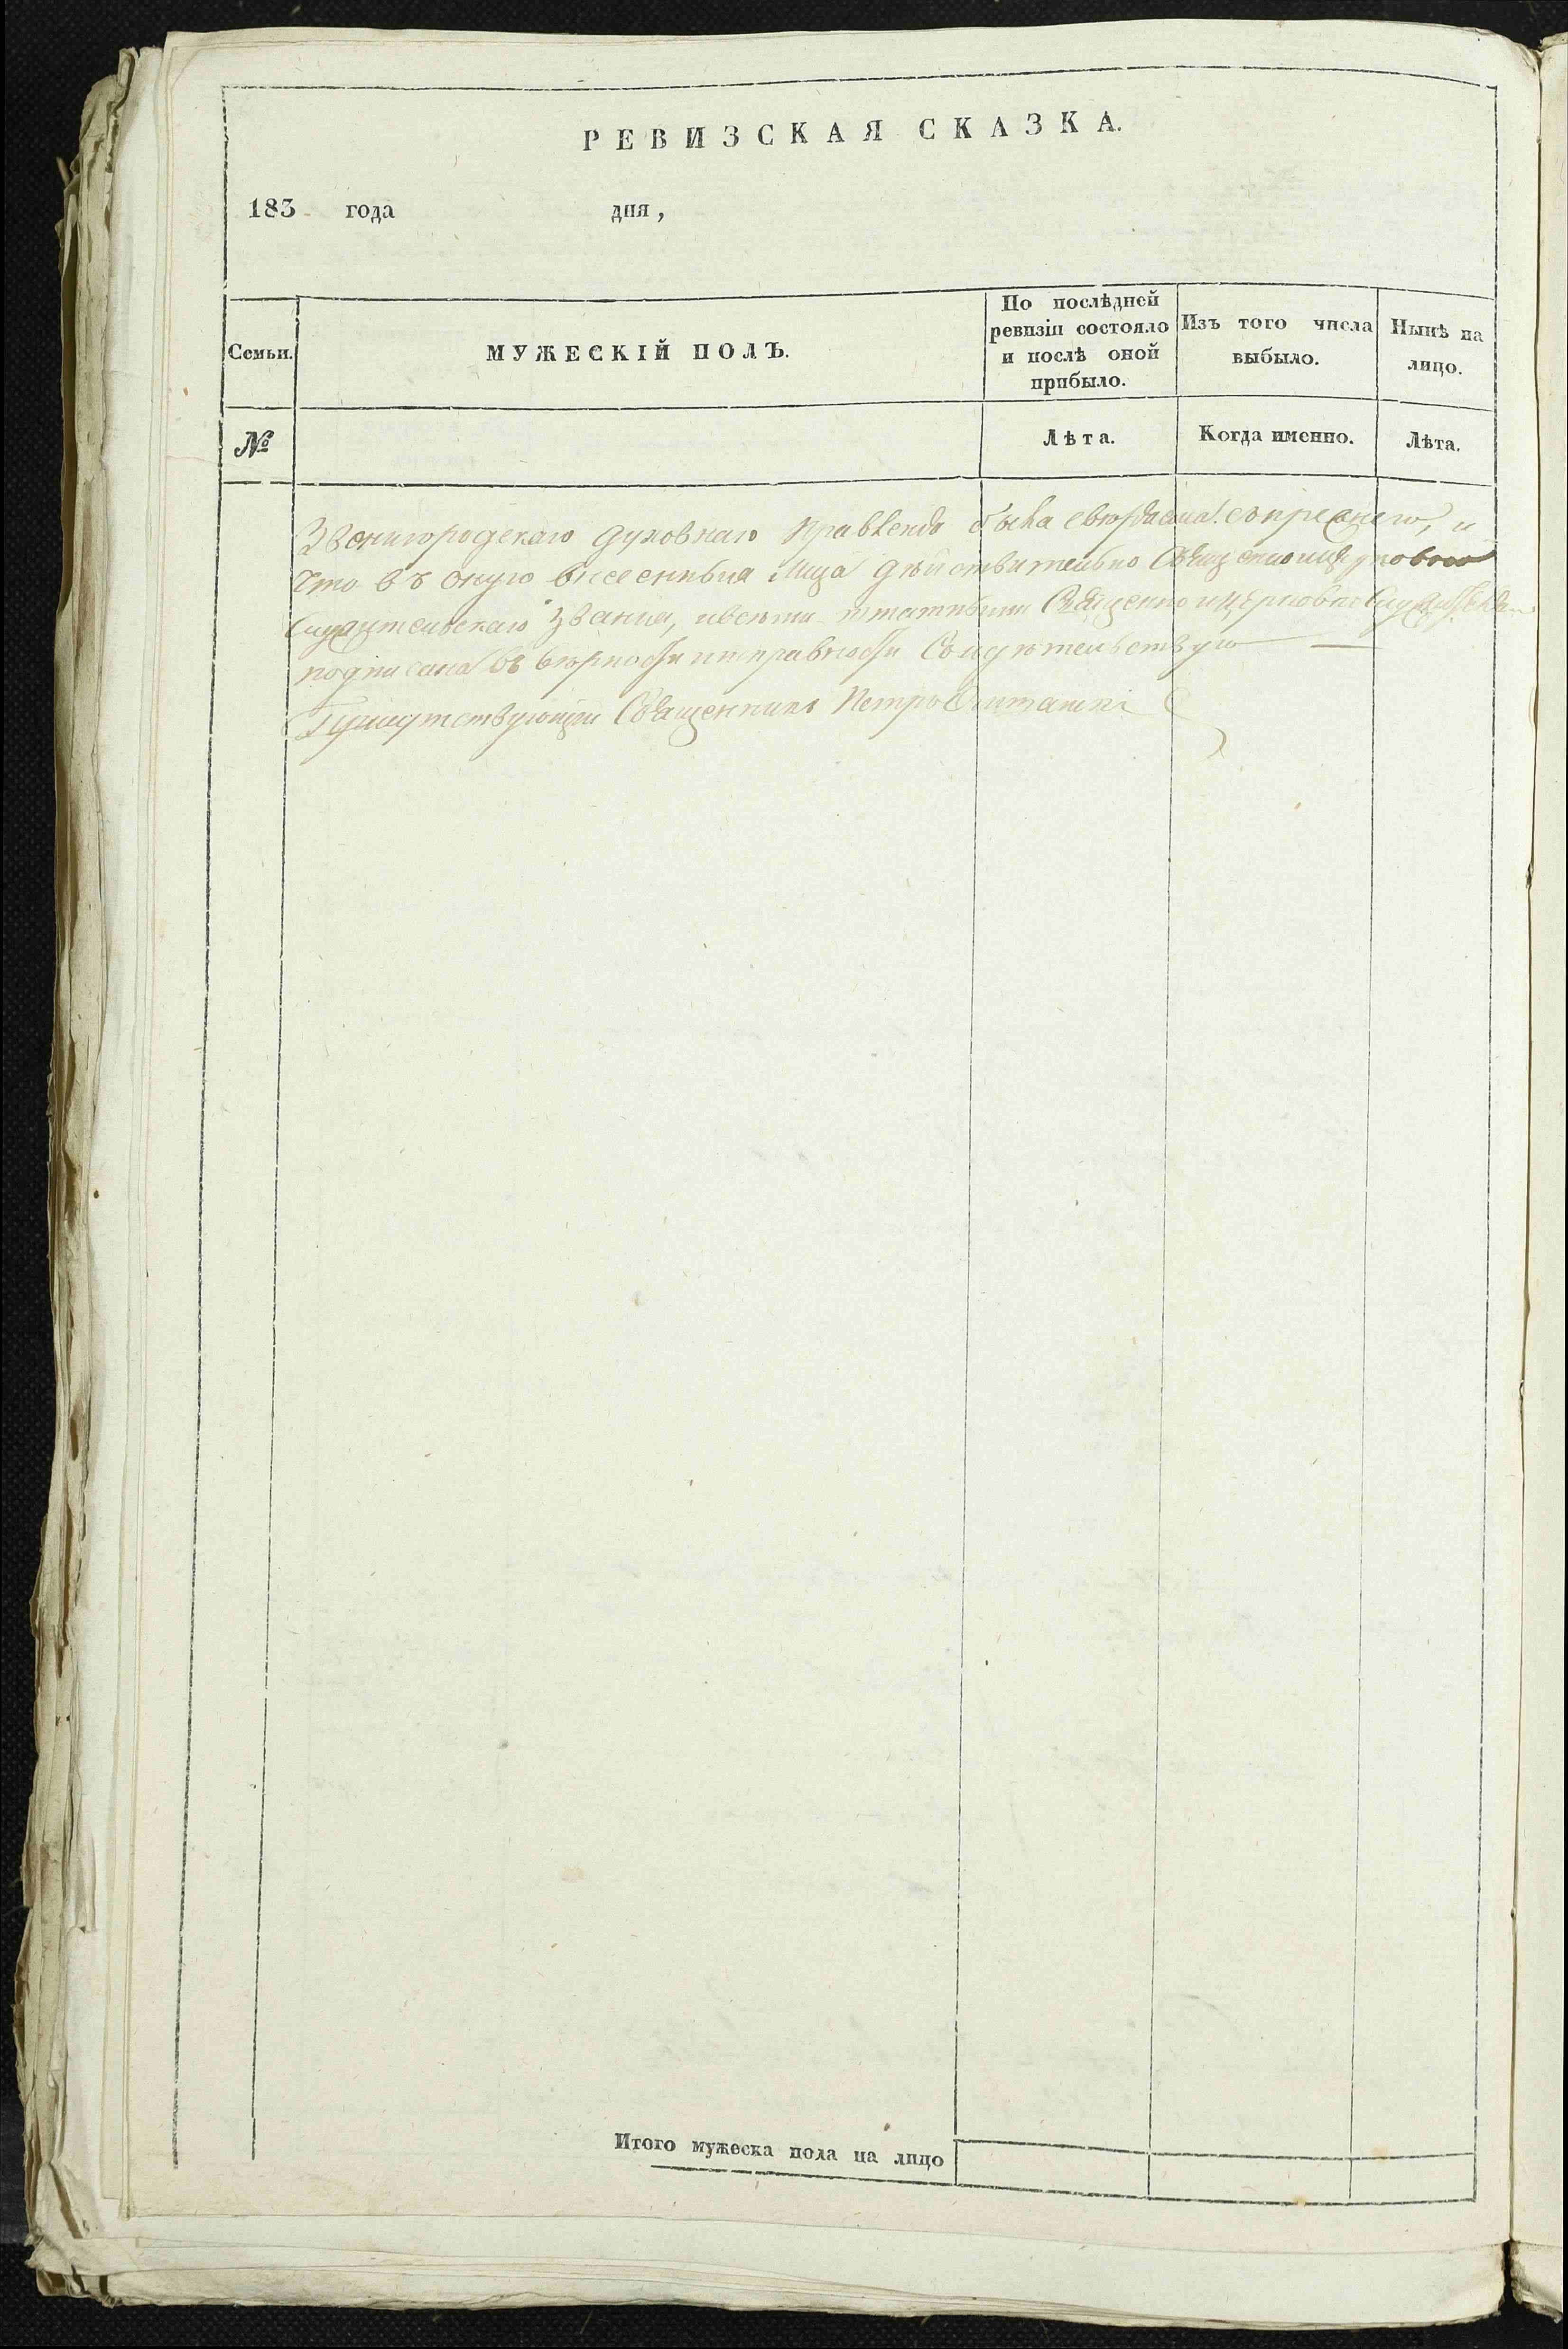 РЕВИЗСКАЯ СКАЗКА.
183 года дня,
Семьи.
МУЖЕСКІЙ ПОЛЪ.
По послѣдней
ревизіи состояло
и послѣ оной
прибыло.
Изъ того числа
выбыло.
Нынѣ на
лицо.
№
Лѣта.
Когда именно.
Лѣта.
Звенигородскаго Духовнаго Правленія была
что въ оную внесенныя лица дѣйствительно
служительскаго званія, и всѣми штатными Священно и церковно
подписана въ вѣрности и исправности Свидѣтельствую
Присутствующій Священникъ Петръ
Итого мужеска пола на лицо